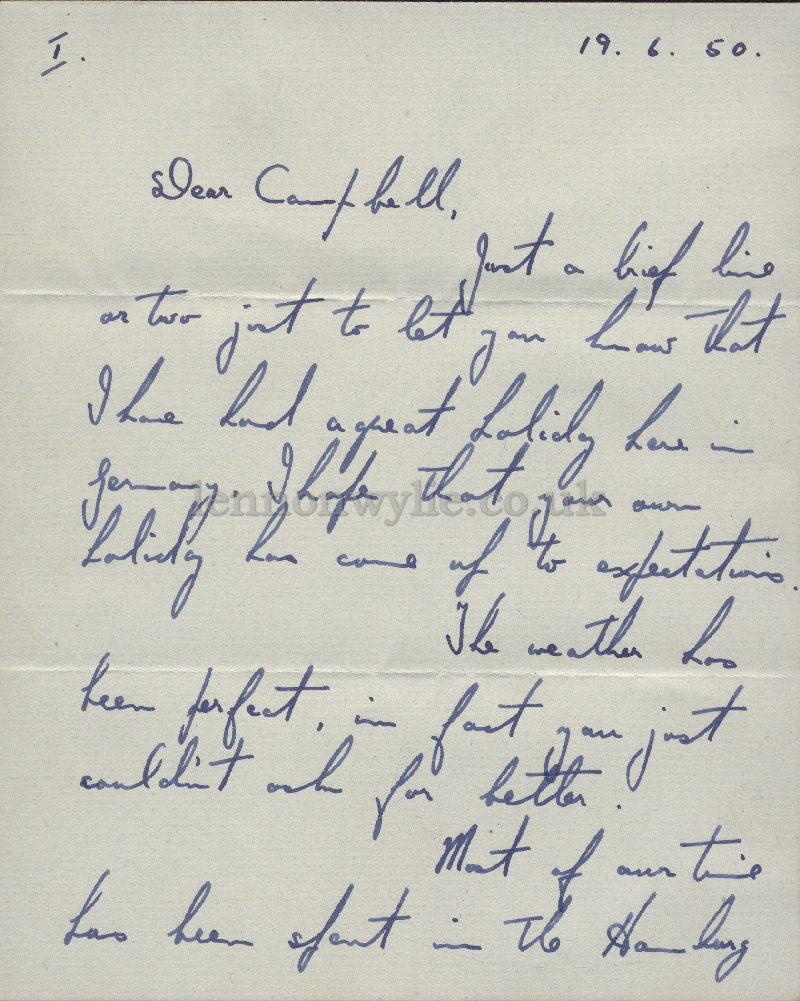 I.
19. 6. 50.
Dear Campbell,
Just a brief line
or two just to let you know that
I have had a great holiday here in
Germany. I hope that your own
lennonwylie.co.uk
holiday has come up to expectations.
The weather has
been perfect, in fact you just
couldn't ask for better.
Most of our time
has been spent in the Hamburg